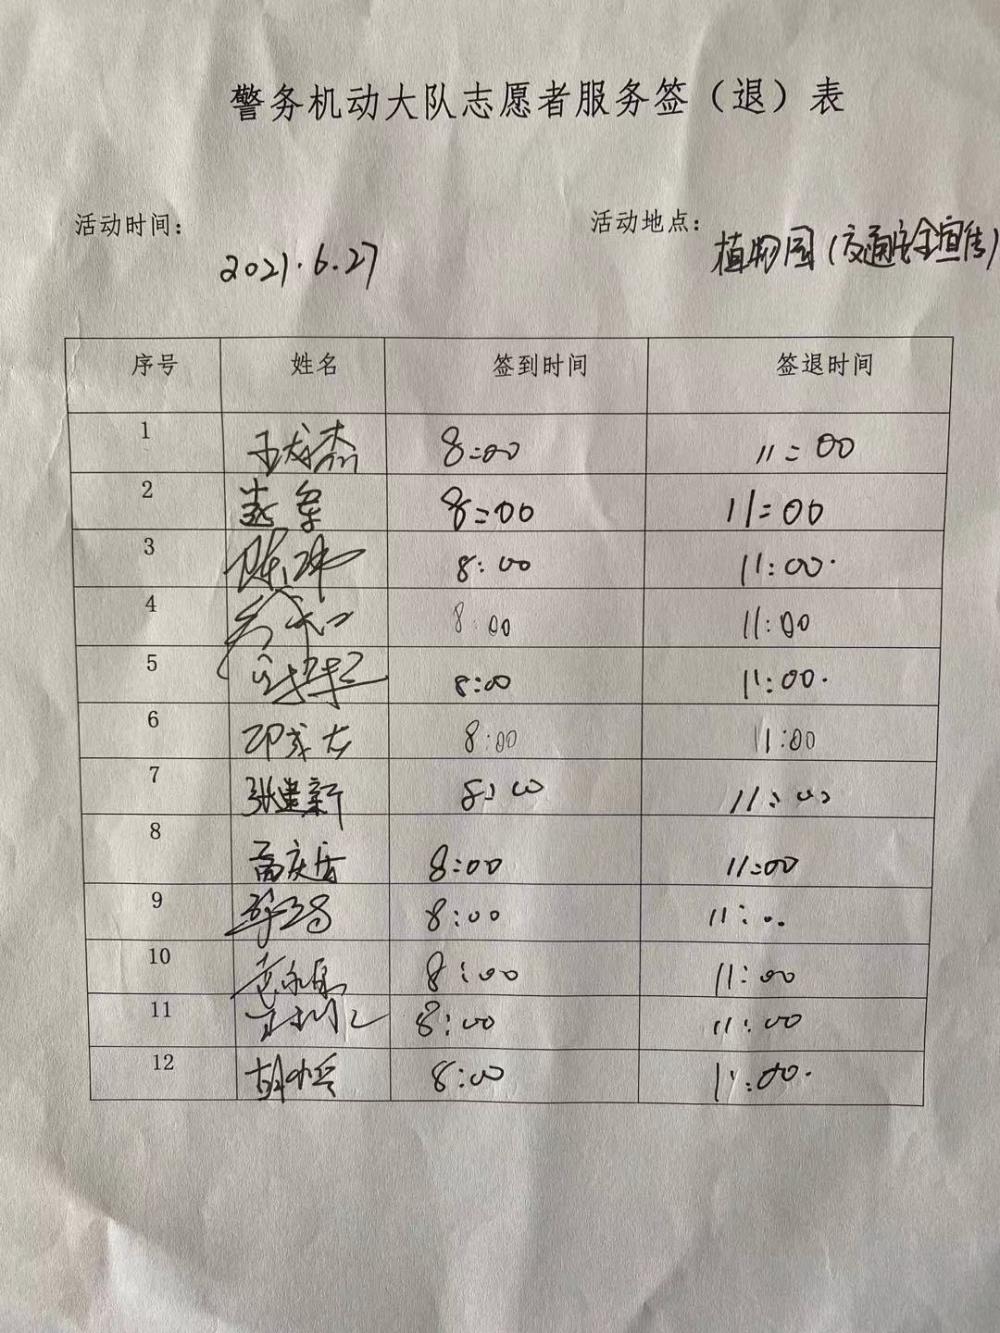 警务机动大队志愿者服务签（退）表
活动时间：
2021.6.27
活动地点：
植物园（交通安全宣传）
序号 姓名 签到时间 签退时间
1 王成杰 8:00 11:00
2 8:00 11:00
3 陈冲 8:00 11:00.
4 8:00 11:00
5 8:00 11:00.
6 邵成龙 8:00 11:00
7 张建新 8:00 11:00
8 高庆 8:00 11:00
9 8:00 11:..
10 8:00 11:00
11 8:00 11:00
12 胡 8:00 11:00.